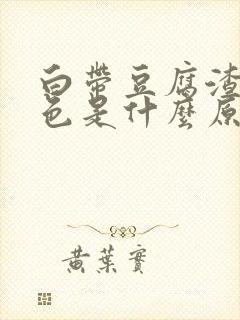 白帶豆腐渣
色是什麼原
黃葉實